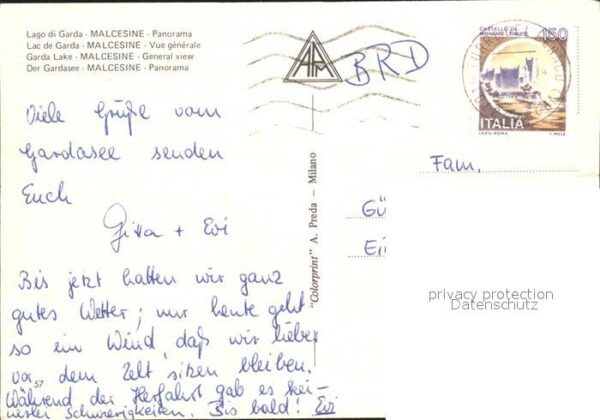 Lago di Garda - MALCESINE - Panorama
Lac de Garda - MALCESINE - Vue générale
Garda Lake - MALCESINE - General view
Der Gardasee - MALCESINE - Panorama
BRD
150
CASTELLO DI
ITALIA
I.P.Z.S.-ROMA
Viele Grüße vom
Gardasee senden
Euch
Gitta + Evi
Bis jetzt hatten wir ganz
gutes Wetter; nur heute geht
so ein Wind, daß wir lieber
vor dem Zelt sitzen bleiben.
57
Während der Herfahrt gab es kei-
nerlei Schwierigkeiten. Bis bald! Evi
"Colorprint" A. Preda - Milano
Fam.
Gü
Ei
privacy protection
Datenschutz